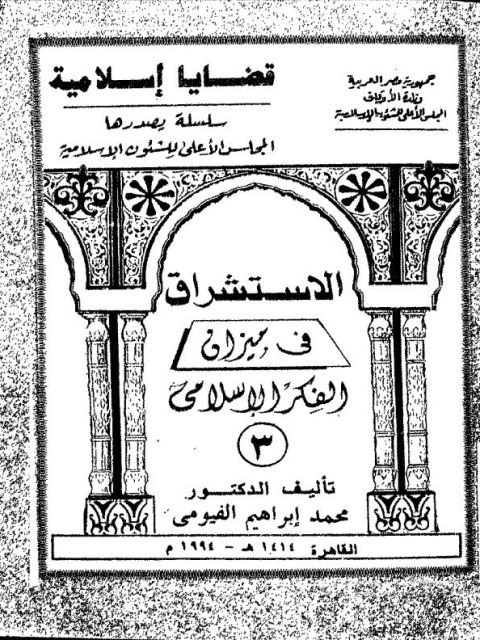 جمهورية مصر العربية
وزارة الأوقاف
المجلس الأعلى للشئون الإسلامية
قضايا إسلامية
سلسلة يصدرها
المجلس الأعلى للشئون الإسلامية
الاستشراق
فى ميزان
الفكر الإسلامى
٣
تأليف الدكتور
محمد إبراهيم الفيومى
القاهرة ١٤١٤ هـ - ١٩٩٤ م